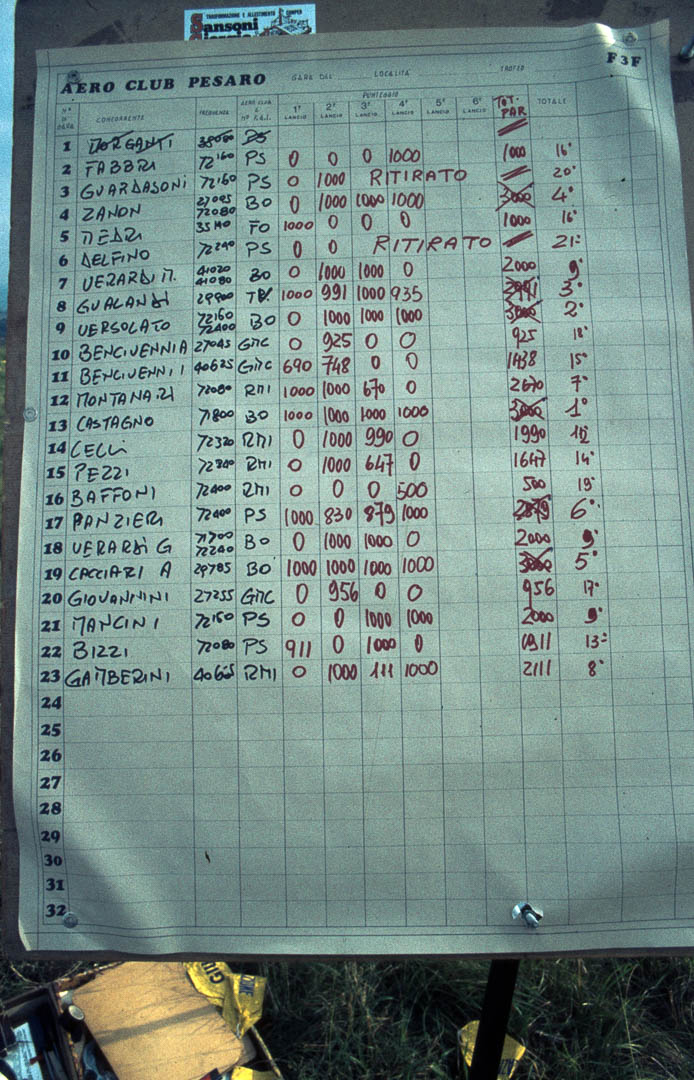 TRASFORMAZIONE E ALLESTIMENTO CAMPER
Sansoni
AERO CLUB PESARO GARA DEL LOCALITÀ TROFEO F3F
N° DI GARA CONCORRENTE FREQUENZA AERO CLUB PUNTEGGIO 1° LANCIO 2° LANCIO 3° LANCIO 4° LANCIO 5° LANCIO 6° LANCIO TOT. PAR TOTALE
1 MORGANTI PS
2 FABBRI 72160 PS 0 0 0 1000 1000 16°
3 GUARDASONI 72160 PS 0 1000 RITIRATO 20°
4 ZANON 27095 72080 BO 0 1000 1000 1000 3000 4°
5 NEDRI FO 1000 0 0 0 1000 16°
6 DELFINO 72240 PS 0 0 RITIRATO 21°
7 VERARDI M. 41020 41080 BO 0 1000 1000 0 2000 9°
8 GUALANDI 29900 TV 1000 991 1000 935 2991 3°
9 VERSOLATO 72160 72400 BO 0 1000 1000 1000 3000 2°
10 BENCIVENNIA 27045 GMC 0 925 0 0 925 18°
11 BENCIVENNI I 40625 GMC 690 748 0 0 1438 15°
12 MONTANARI 72080 RMI 1000 1000 670 0 2670 7°
13 CASTAGNO 71800 BO 1000 1000 1000 1000 3000 1°
14 CELLI 72320 RMI 0 1000 990 0 1990 12
15 PEZZI RMI 0 1000 647 0 1647 14°
16 BAFFONI 72400 RMI 0 0 0 500 500 19°
17 PANZIERI 72400 PS 1000 830 879 1000 2879 6°
18 VERARDI G 71700 72240 BO 0 1000 1000 0 2000 9°
19 CACCIARI A 29785 BO 1000 1000 1000 1000 3000 5°
20 GIOVANNINI 27255 GMC 0 956 0 0 956 17°
21 MANCINI 72160 PS 0 0 1000 1000 2000 9°
22 BIZZI 72080 PS 911 0 1000 0 1911 13°
23 GAMBERINI 40665 RMI 0 1000 111 1000 2111 8°
24
25
26
27
28
29
30
31
32